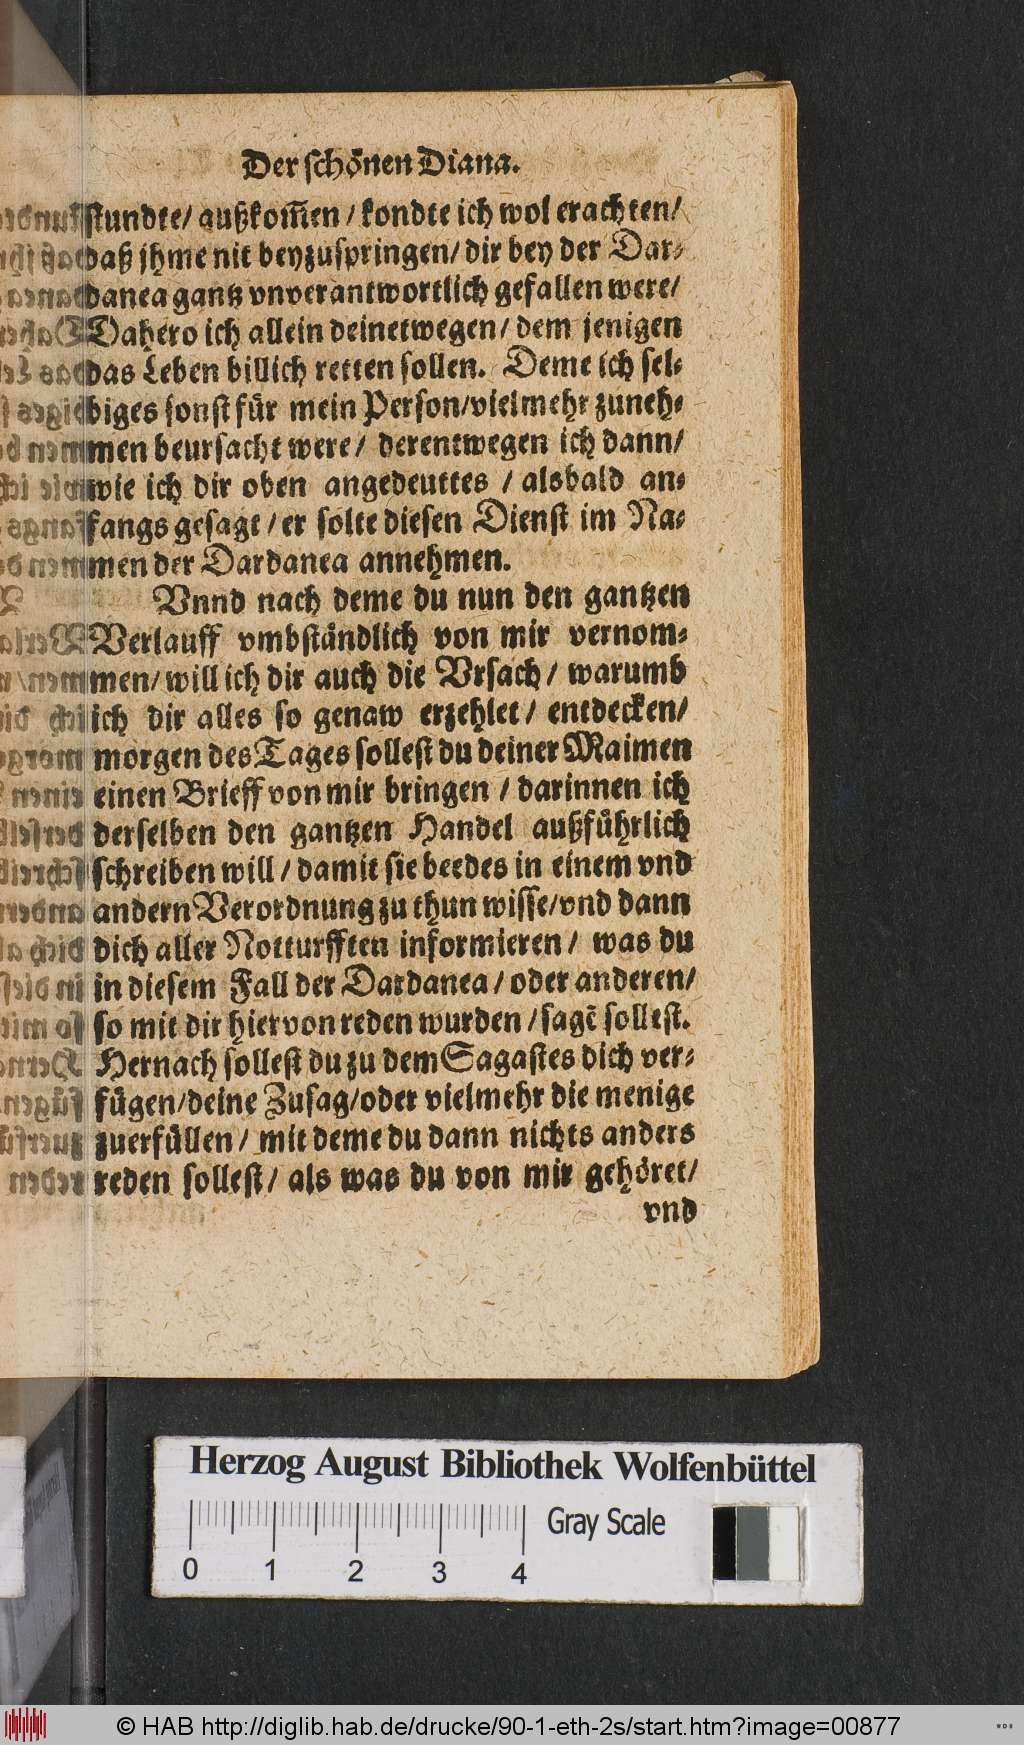 Der schönen Diana.
stundte/ außkom̃en / kondte ich wol erachten/
daß jhme nit beyzuspringen/ dir bey der Dar-
danea gantz vnverantwortlich gefallen were/
Dahero ich allein deinetwegen/ dem jenigen
das Leben billich retten sollen. Deme ich sel-
biges sonst für mein Person/vielmehr zuneh-
men beursacht were/ derentwegen ich dann/
wie ich dir oben angedeuttes / alsbald an-
fangs gesagt / er solte diesen Dienst im Na-
men der Dardanea annehmen.
Vnnd nach deme du nun den gantzen
Verlauff vmbständlich von mir vernom-
men/ will ich dir auch die Vrsach / warumb
ich dir alles so genaw erzehlet/ entdecken/
morgen des Tages sollest du deiner Maimen
einen Brieff von mir bringen / darinnen ich
derselben den gantzen Handel außführlich
schreiben will / damit sie beedes in einem vnd
andern Verordnung zu thun wisse/vnd dann
dich aller Notturfften informieren / was du
in diesem Fall der Dardanea / oder anderen/
so mit dir hiervon reden wurden / sagẽ sollest.
Hernach sollest du zu dem Sagastes dich ver-
fügen/deine Zusag/oder vielmehr die menige
zuerfüllen / mit deme du dann nichts anders
reden sollest/ als was du von mir gehöret/
vnd
Herzog August Bibliothek Wolfenbüttel
Gray Scale
0 1 2 3 4
© HAB http://diglib.hab.de/drucke/90-1-eth-2s/start.htm?image=00877